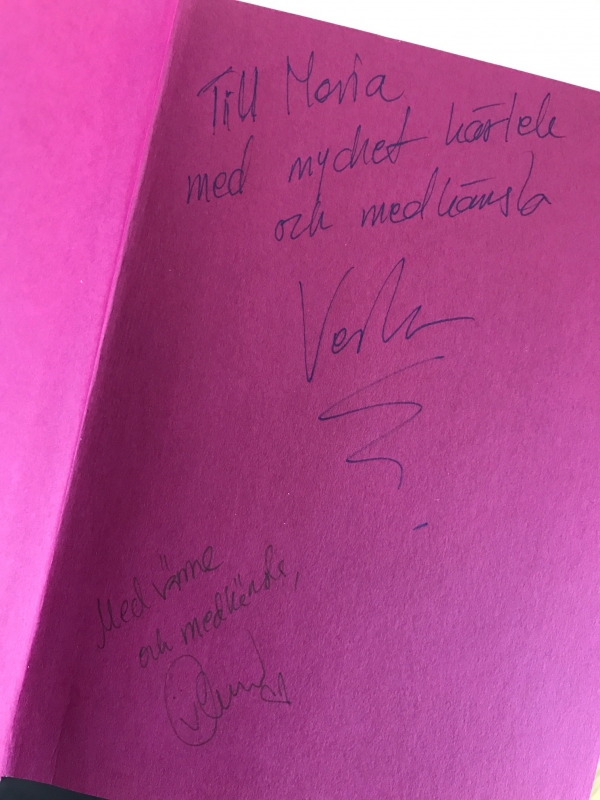 Till Maria
med mycket kärlek
och medkänsla
Med värme
och medkänsla,